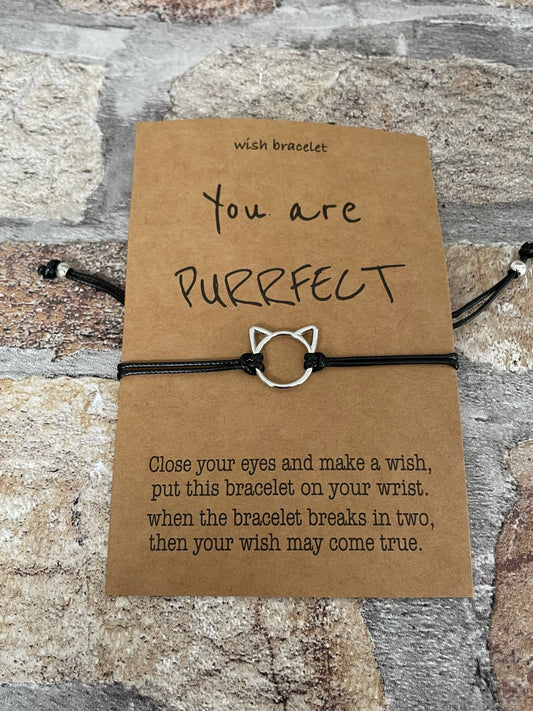 wish bracelet
You are
PURRFECT
Close your eyes and make a wish,
put this bracelet on your wrist.
when the bracelet breaks in two,
then your wish may come true.